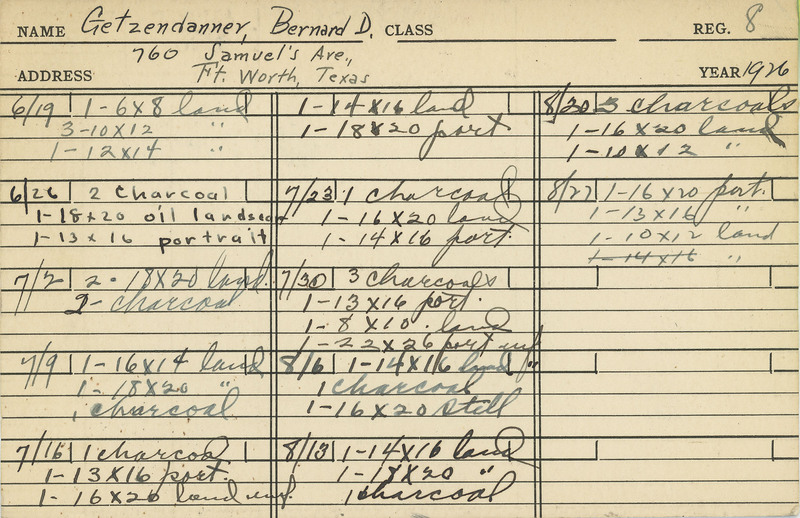 NAME Getzendanner, Bernard D. CLASS REG. 8
760 Samuel's Ave.,
ADDRESS Ft. Worth, Texas YEAR 1926
6/19 1-6x8 land
3-10x12 "
1-12x14 "
6/26 2 Charcoal
1-18x20 oil landscape
1-13x16 portrait
7/2 2-18x20 land.
2- charcoal
7/9 1-16x14 land
1-18x20 "
1 charcoal
7/16 1 charcoal
1-13x16 port.
1-16x20 land unf.
1-14x16 land
1-18x20 port
7/23 1 charcoal
1-16x20 land
1-14x16 port.
7/30 3 charcoals
1-13x16 port.
1-8x10. land
1-22x26 port unf
8/6 1-14x16 land "
1 charcoal
1-16x20 Still
8/13 1-14x16 land
1-18x20 "
1 charcoal
8/20 3 charcoals
1-16x20 land
1-10x12 "
8/27 1-16x20 port.
1-13x16 "
1-10x12 land
1-14x16 "